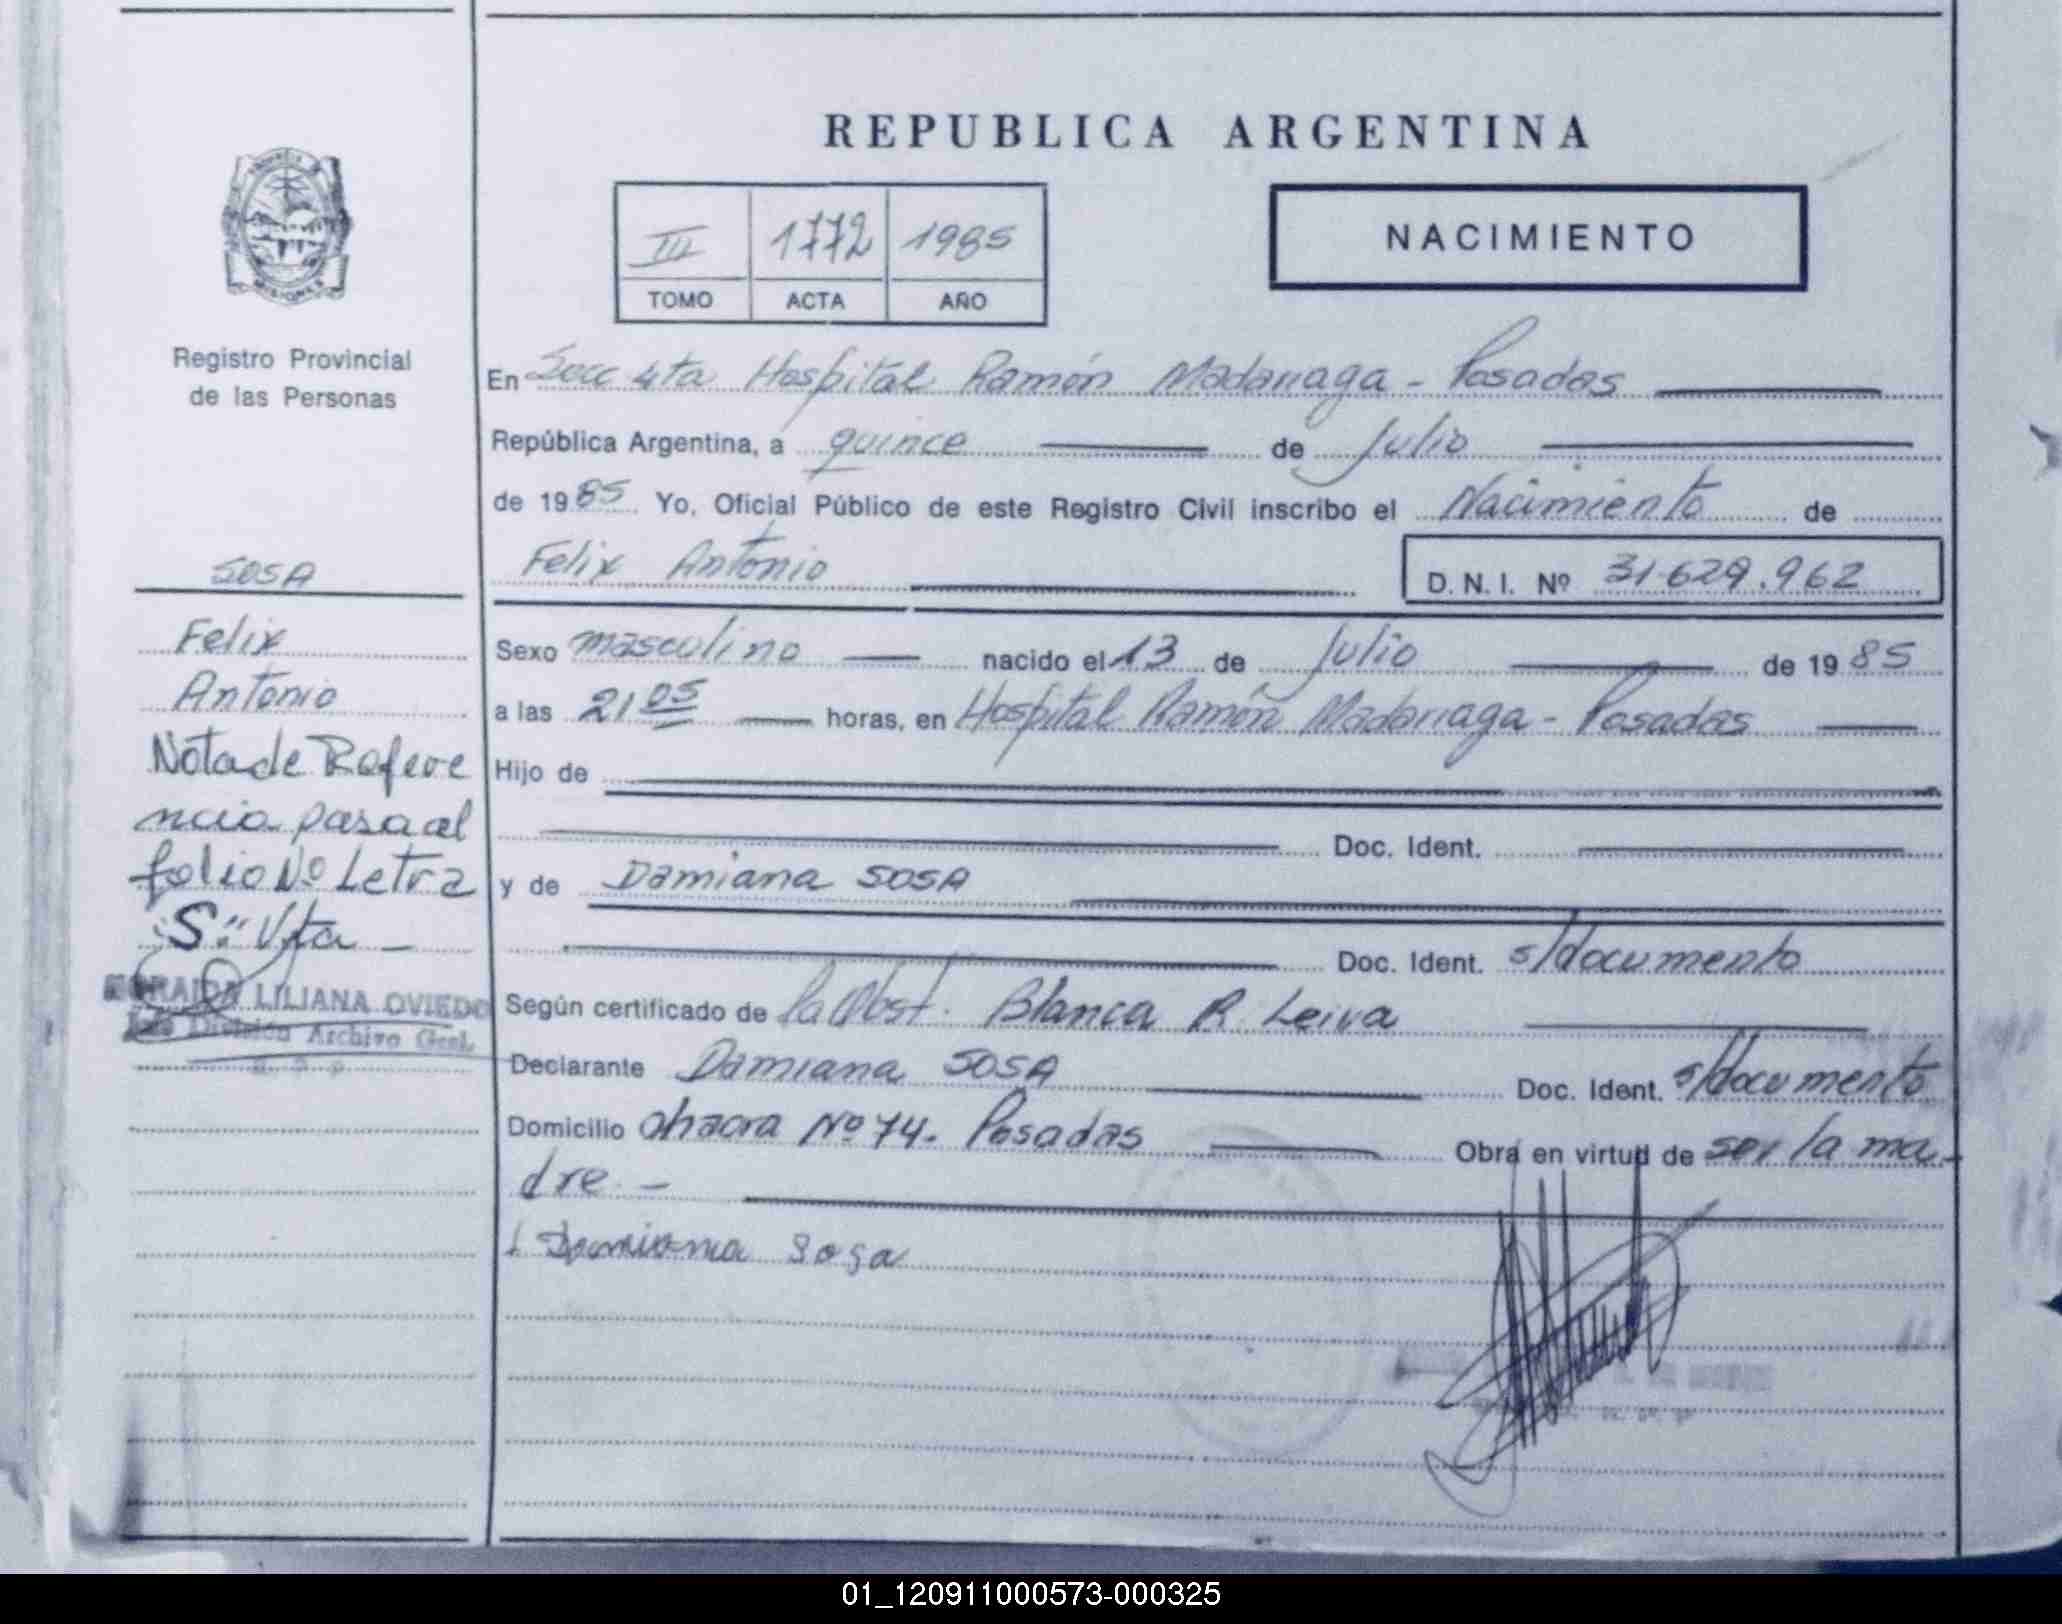 REPUBLICA ARGENTINA
III 1772 1985
TOMO ACTA AÑO
NACIMIENTO
MISIONES
Registro Provincial
de las Personas
SOSA
Felix
Antonio
Nota de Refere
ncia pasa al
folio Nº Letra
"S" Vta -
LILIANA OVIEDO
División Archivo Gral.
En Secc 4ta Hospital Ramón Madariaga - Posadas
República Argentina, a quince de Julio
de 1985 Yo, Oficial Público de este Registro Civil inscribo el Nacimiento de
Felix Antonio D.N.I. Nº 31.629.962
Sexo masculino nacido el 13 de Julio de 1985
a las 21 05 horas, en Hospital Ramón Madariaga - Posadas
Hijo de
Doc. Ident.
y de Damiana SOSA
Doc. Ident. s/documento
Según certificado de la Obst. Blanca R. Leiva
Declarante Damiana SOSA Doc. Ident. s/documento
Domicilio chacra Nº 74. Posadas Obra en virtud de ser la ma-
dre. -
Damiana Sosa
01_120911000573-000325